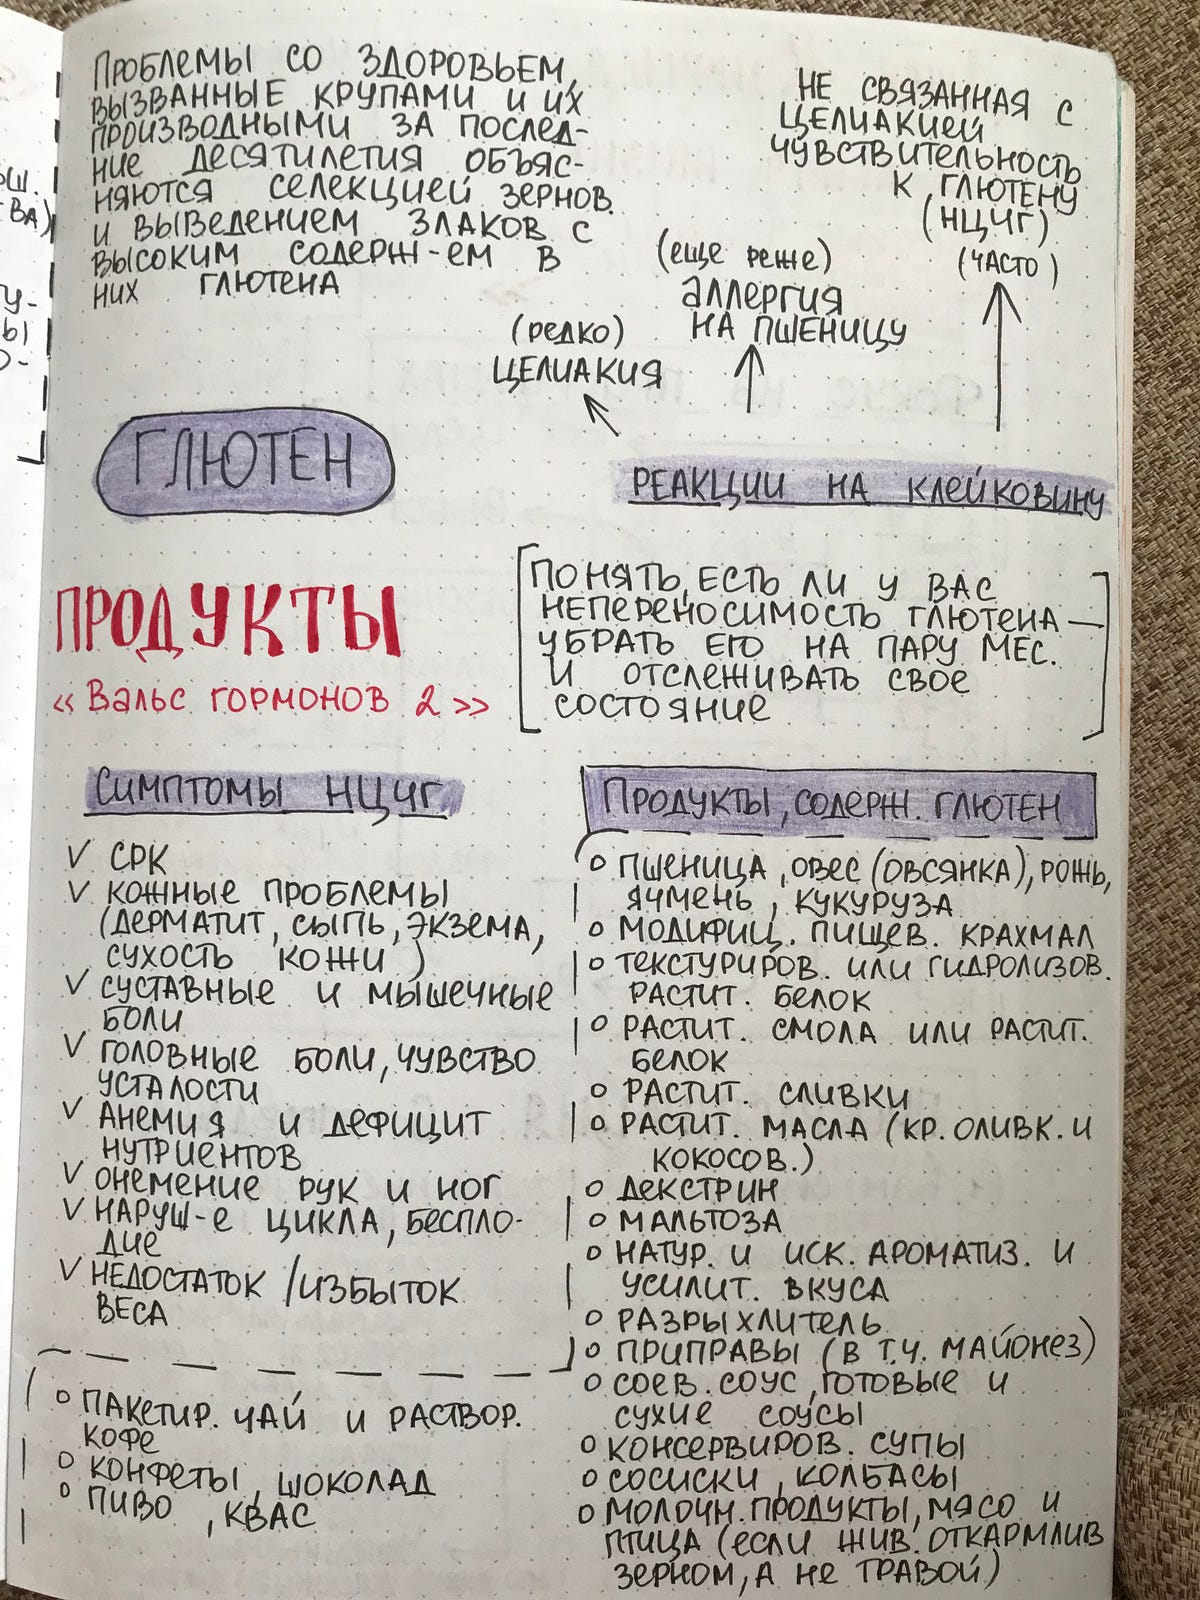 ПРОБЛЕМЫ СО ЗДОРОВЬЕМ,
ВЫЗВАННЫЕ КРУПАМИ И ИХ
ПРОИЗВОДНЫМИ ЗА ПОСЛЕД-
НИЕ ДЕСЯТИЛЕТИЯ ОБЪЯС-
НЯЮТСЯ СЕЛЕКЦИЕЙ ЗЕРНОВ.
И ВЫВЕДЕНИЕМ ЗЛАКОВ С
ВЫСОКИМ СОДЕРЖ-ЕМ В
НИХ ГЛЮТЕНА
НЕ СВЯЗАННАЯ С
ЦЕЛИАКИЕЙ
ЧУВСТВИТЕЛЬНОСТЬ
К ГЛЮТЕНУ
(НЦЧГ)
(ЧАСТО)
(еще реже)
аллергия
НА ПШЕНИЦУ
(редко)
ЦЕЛИАКИЯ
ГЛЮТЕН
РЕАКЦИИ НА КЛЕЙКОВИНУ
ПРОДУКТЫ
«Вальс гормонов 2»
ПОНЯТЬ, ЕСТЬ ЛИ У ВАС
НЕПЕРЕНОСИМОСТЬ ГЛЮТЕНА —
УБРАТЬ ЕГО НА ПАРУ МЕС.
И ОТСЛЕЖИВАТЬ СВОЕ
СОСТОЯНИЕ
Симптомы НЦЧГ
V СРК
V КОЖНЫЕ ПРОБЛЕМЫ
(ДЕРМАТИТ, СЫПЬ, ЭКЗЕМА,
СУХОСТЬ КОЖИ)
V СУСТАВНЫЕ И МЫШЕЧНЫЕ
БОЛИ
V ГОЛОВНЫЕ БОЛИ, ЧУВСТВО
УСТАЛОСТИ
V АНЕМИЯ И ДЕФИЦИТ
НУТРИЕНТОВ
V ОНЕМЕНИЕ РУК И НОГ
V НАРУШ-Е ЦИКЛА, БЕСПЛО-
ДИЕ
V НЕДОСТАТОК / ИЗБЫТОК
ВЕСА
Продукты, содерж. глютен
o ПШЕНИЦА, ОВЕС (ОВСЯНКА), РОЖЬ,
ЯЧМЕНЬ, КУКУРУЗА
o МОДИФИЦ. ПИЩЕВ. КРАХМАЛ
o ТЕКСТУРИРОВ. ИЛИ ГИДРОЛИЗОВ.
РАСТИТ. БЕЛОК
o РАСТИТ. СМОЛА ИЛИ РАСТИТ.
БЕЛОК
o РАСТИТ. СЛИВКИ
o РАСТИТ. МАСЛА (КР. ОЛИВК. И
КОКОСОВ.)
o ДЕКСТРИН
o МАЛЬТОЗА
o НАТУР. И ИСК. АРОМАТИЗ. И
УСИЛИТ. ВКУСА
o РАЗРЫХЛИТЕЛЬ
o ПРИПРАВЫ (В Т.Ч. МАЙОНЕЗ)
o СОЕВ. СОУС, ГОТОВЫЕ И
СУХИЕ СОУСЫ
o КОНСЕРВИРОВ. СУПЫ
o СОСИСКИ, КОЛБАСЫ
o МОЛОЧН. ПРОДУКТЫ, МЯСО И
ПТИЦА (если ЖИВ. ОТКАРМЛИВ
ЗЕРНОМ, А НЕ ТРАВОЙ)
o ПАКЕТИР. ЧАЙ И РАСТВОР.
КОФЕ
o КОНФЕТЫ, ШОКОЛАД
o ПИВО, КВАС